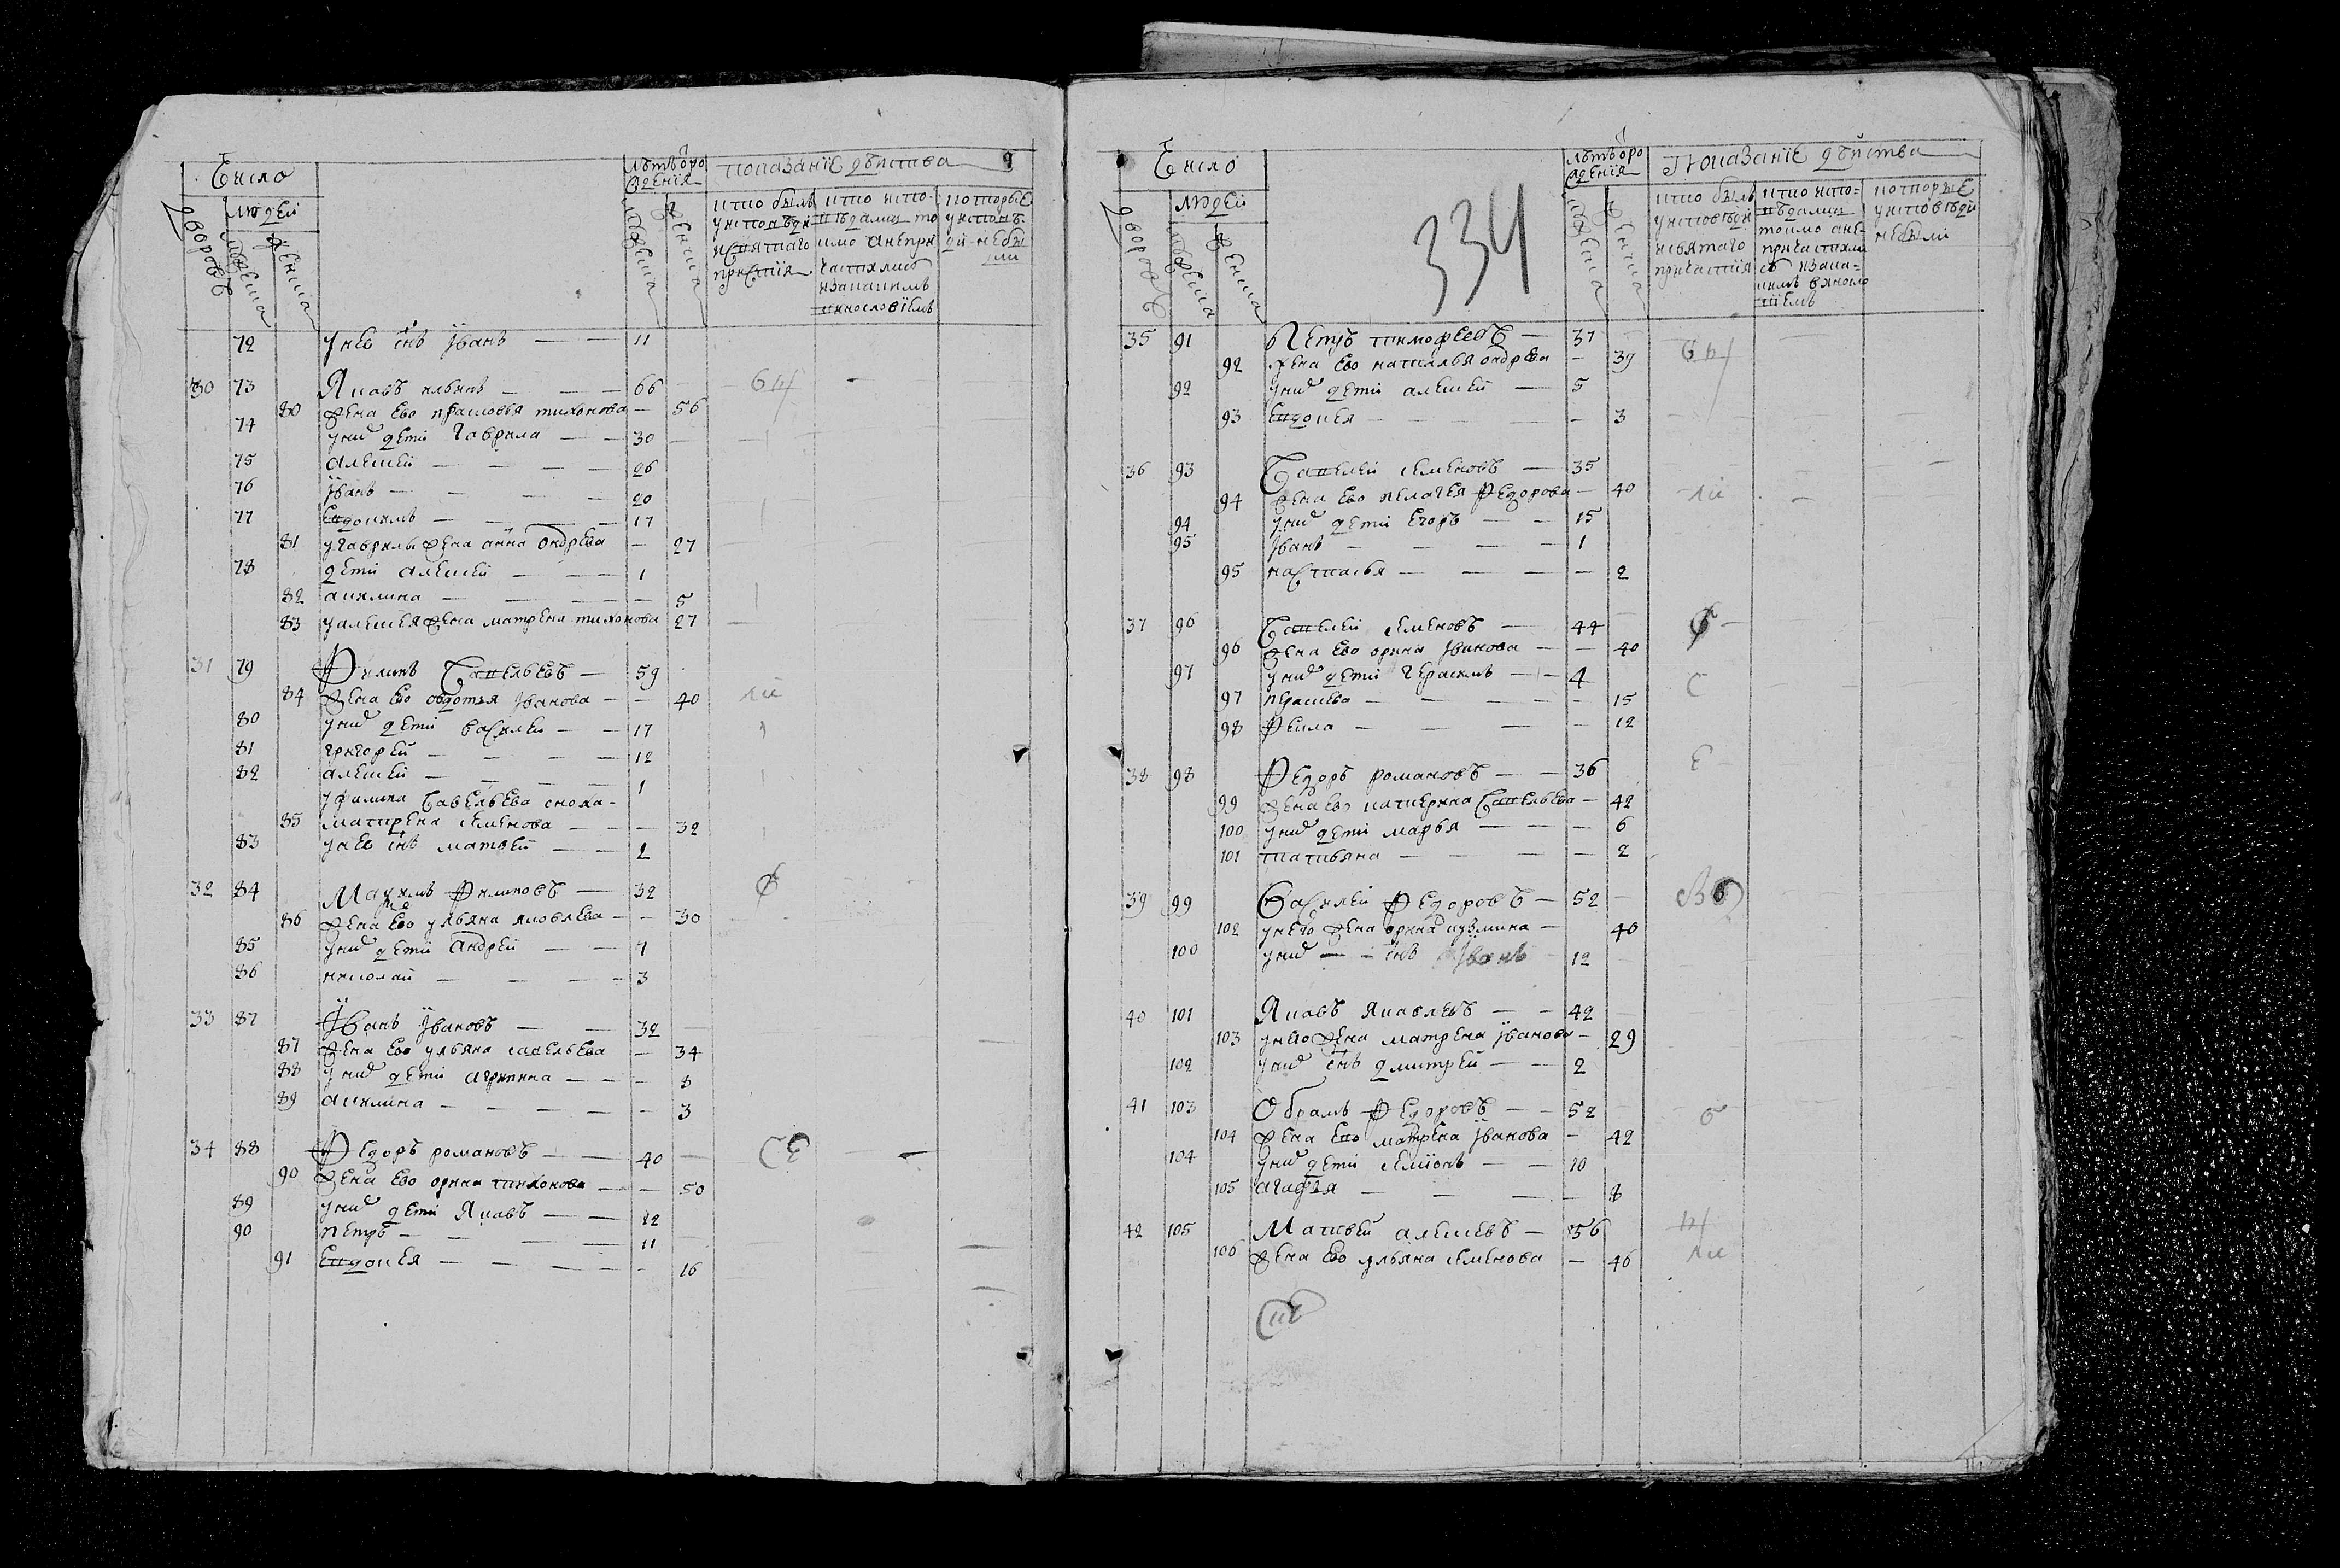 Число
лѣтъ от рождения
показаниӗ дѣйства
людей
дворовъ
мужеска
женска
мужеска
женска
кто былъ у исповѣди и святаго причастия
кто исповѣдались токмо а не причастились и за каким винословием
которые у исповѣди не были
72 у нее сынъ Иванъ — — 11
30 73 Яковъ ильинъ — — — 66
80 жена ево прасковья тихонова — 56
74 у них дети гаврила — — 30
75 алексей — — — — 26
76 Иванъ — — — — 20
77 Евдокимъ — — — — 17
81 у гаврилы жена анна ондреева — 27
78 дети алексей — — — 1
82 акилина — — — — 5
83 у алексея жена матрена тихонова 27
31 79 Филипъ Савельевъ — 59
84 жена ево овдотья Иванова — — 40
80 у них дети василей — — 17
81 григорей — — — — 12
82 алексей — — — — 1
у филипа Савельева сноха
85 матрена семенова — — — 32
83 у нее сынъ матвей — — 2
32 84 Макимъ Филиповъ — 32
86 жена ево ульяна яковлева — — 30
85 у них дети андрей — — 7
86 николай — — — — 3
33 87 Иванъ Ивановъ — — 32
87 жена ево ульяна савельева — 34
88 у них дети агрипина — — — 8
89 акилина — — — — — 3
34 88 Федоръ романовъ — — 40
90 жена ево орина тихонова — — 50
89 у них дети Яковъ — — 12
90 петръ — — — — 11
91 Евдокея — — — — — 16
334
Число
лѣтъ от рождения
Показание дѣйства
людей
дворовъ
мужеска
женска
мужеска
женска
кто былъ у исповѣди и святаго причастия
кто исповѣдались токмо а не причастились и за каким винословием
которые у исповѣди не были
35 91 Петръ тимофеевъ — 37
92 жена ево наталья ондреева — 39
92 у них дети алексей — 5
93 Евдокея — — — — — 3
36 93 Савелей семеновъ — 35
94 жена ево пелагея Федорова — 40
94 у них дети егоръ — — 15
95 Иванъ — — — — 1
95 настасья — — — — 2
37 96 Савелей семеновъ — 44
96 жена ево орина Иванова — — 40
97 у них дети герасимъ — — 4
97 прасковья — — — — 15
98 Фекла — — — — 12
38 98 Федоръ романовъ — — 36
99 жена ево катерина Савельева — 42
100 у них дети марья — — — 6
101 татьяна — — — — 2
39 99 Василей Федоровъ — 52
102 у него жена орина кузмина — 40
100 у них — — сынъ Иванъ — 12
40 101 Яковъ Яковлевъ — — 42
103 у него жена матрена Иванова — 29
102 у них сынъ дмитрей — — 2
41 103 Обрамъ Федоровъ — — 52
104 жена ево матрена Иванова — 42
104 у них дети семионъ — — 10
105 агафья — — — — 8
42 105 Матвей алексеевъ — 56
106 жена ево ульяна семенова — 46